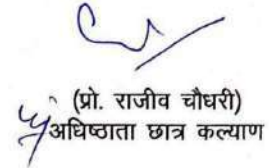 (प्रो. राजीव चौधरी)
अधिष्ठाता छात्र कल्याण